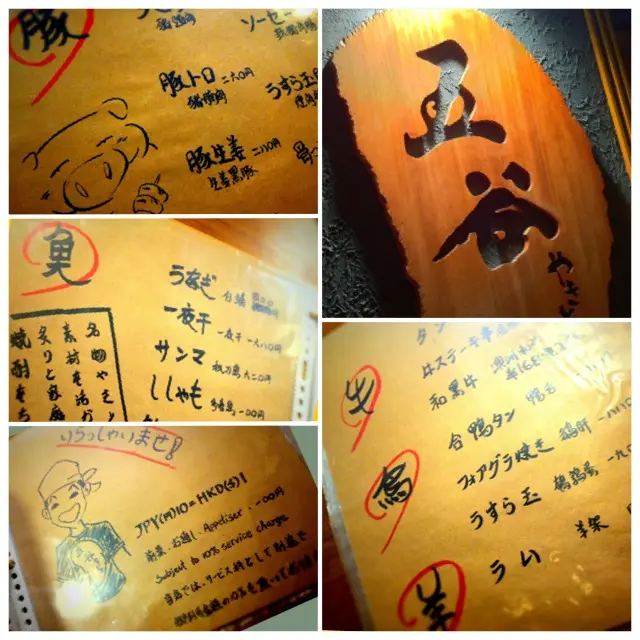 豚
ソーセー
豚トロ 二六〇円
猪頸肉
うずら玉
豚生姜 二八〇円
生姜黒豚
五
谷
やき
魚
うなぎ 白鱔
一夜干 一夜干 一八〇円
サンマ 秋刀魚 六二〇円
ししゃも 多春魚 一〇〇円
名物やき
素材を活か
炙りと
焼酎をち
いらっしゃいませ!
JPY(円)10=HKD($)1
前菜・お通し・Appetiser・一〇〇円
Subject to 10% service charge
当店では、サービス料として別途で
タン
牛
牛ステーキ串
和黒牛
合鴨タン 鴨舌
鳥
フォアグラ焼き 鵝肝
うずら玉 鵪鶉蛋
羊
羊架